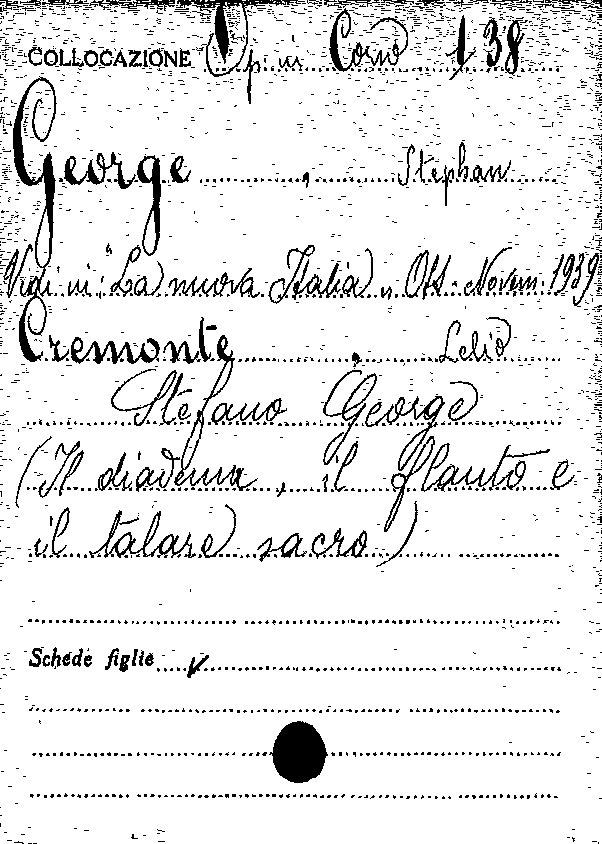 COLLOCAZIONE Op. in Corso 138
George, Stephan
Vedi in: "La nuova Italia„ Ott. Novem. 1939
Cremonte, Lelio
Stefano George
(Il diadema, il flauto e
il talare sacro)
Schede figlie V